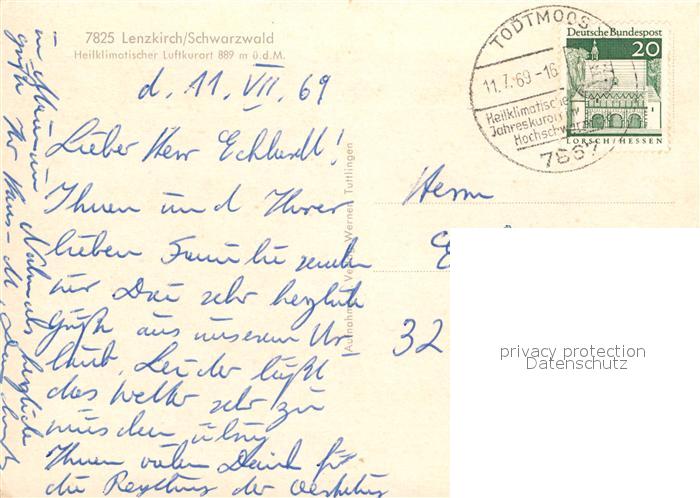 7825 Lenzkirch/Schwarzwald
Heilklimatischer Luftkurort 889 m ü.d.M.
d. 11. VII. 69
Lieber Herr Eckhardt!
Ihnen und Ihrer
lieben Familie senden
wir Dau sehr herzliche
Grüße aus unserem Ur-
laub. Leider läßt
das Wetter sehr zu
wünschen übrig
Ihnen vielen Dank für
die Regelung der
Nochmals herzliche
Grüße Ihr Hans-
Aufnahme u. Verlag Werner, Tuttlingen
TODTMOOS
11.7.69-16
Heilklimatischer
Jahreskurort im
Hochschwarzwald
7867
Deutsche Bundespost
20
LORSCH/HESSEN
Herrn
E
32
privacy protection
Datenschutz